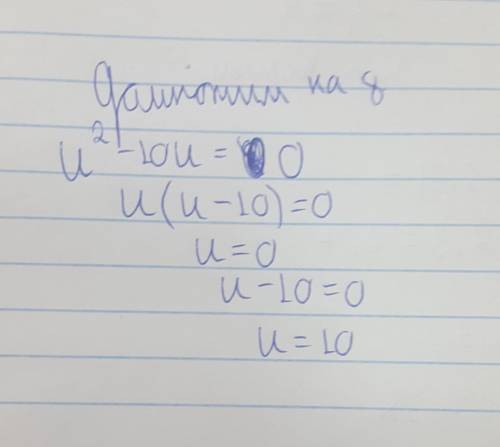 Домножим на 8
u² - 10u = 0
u(u - 10) = 0
u = 0
u - 10 = 0
u = 10